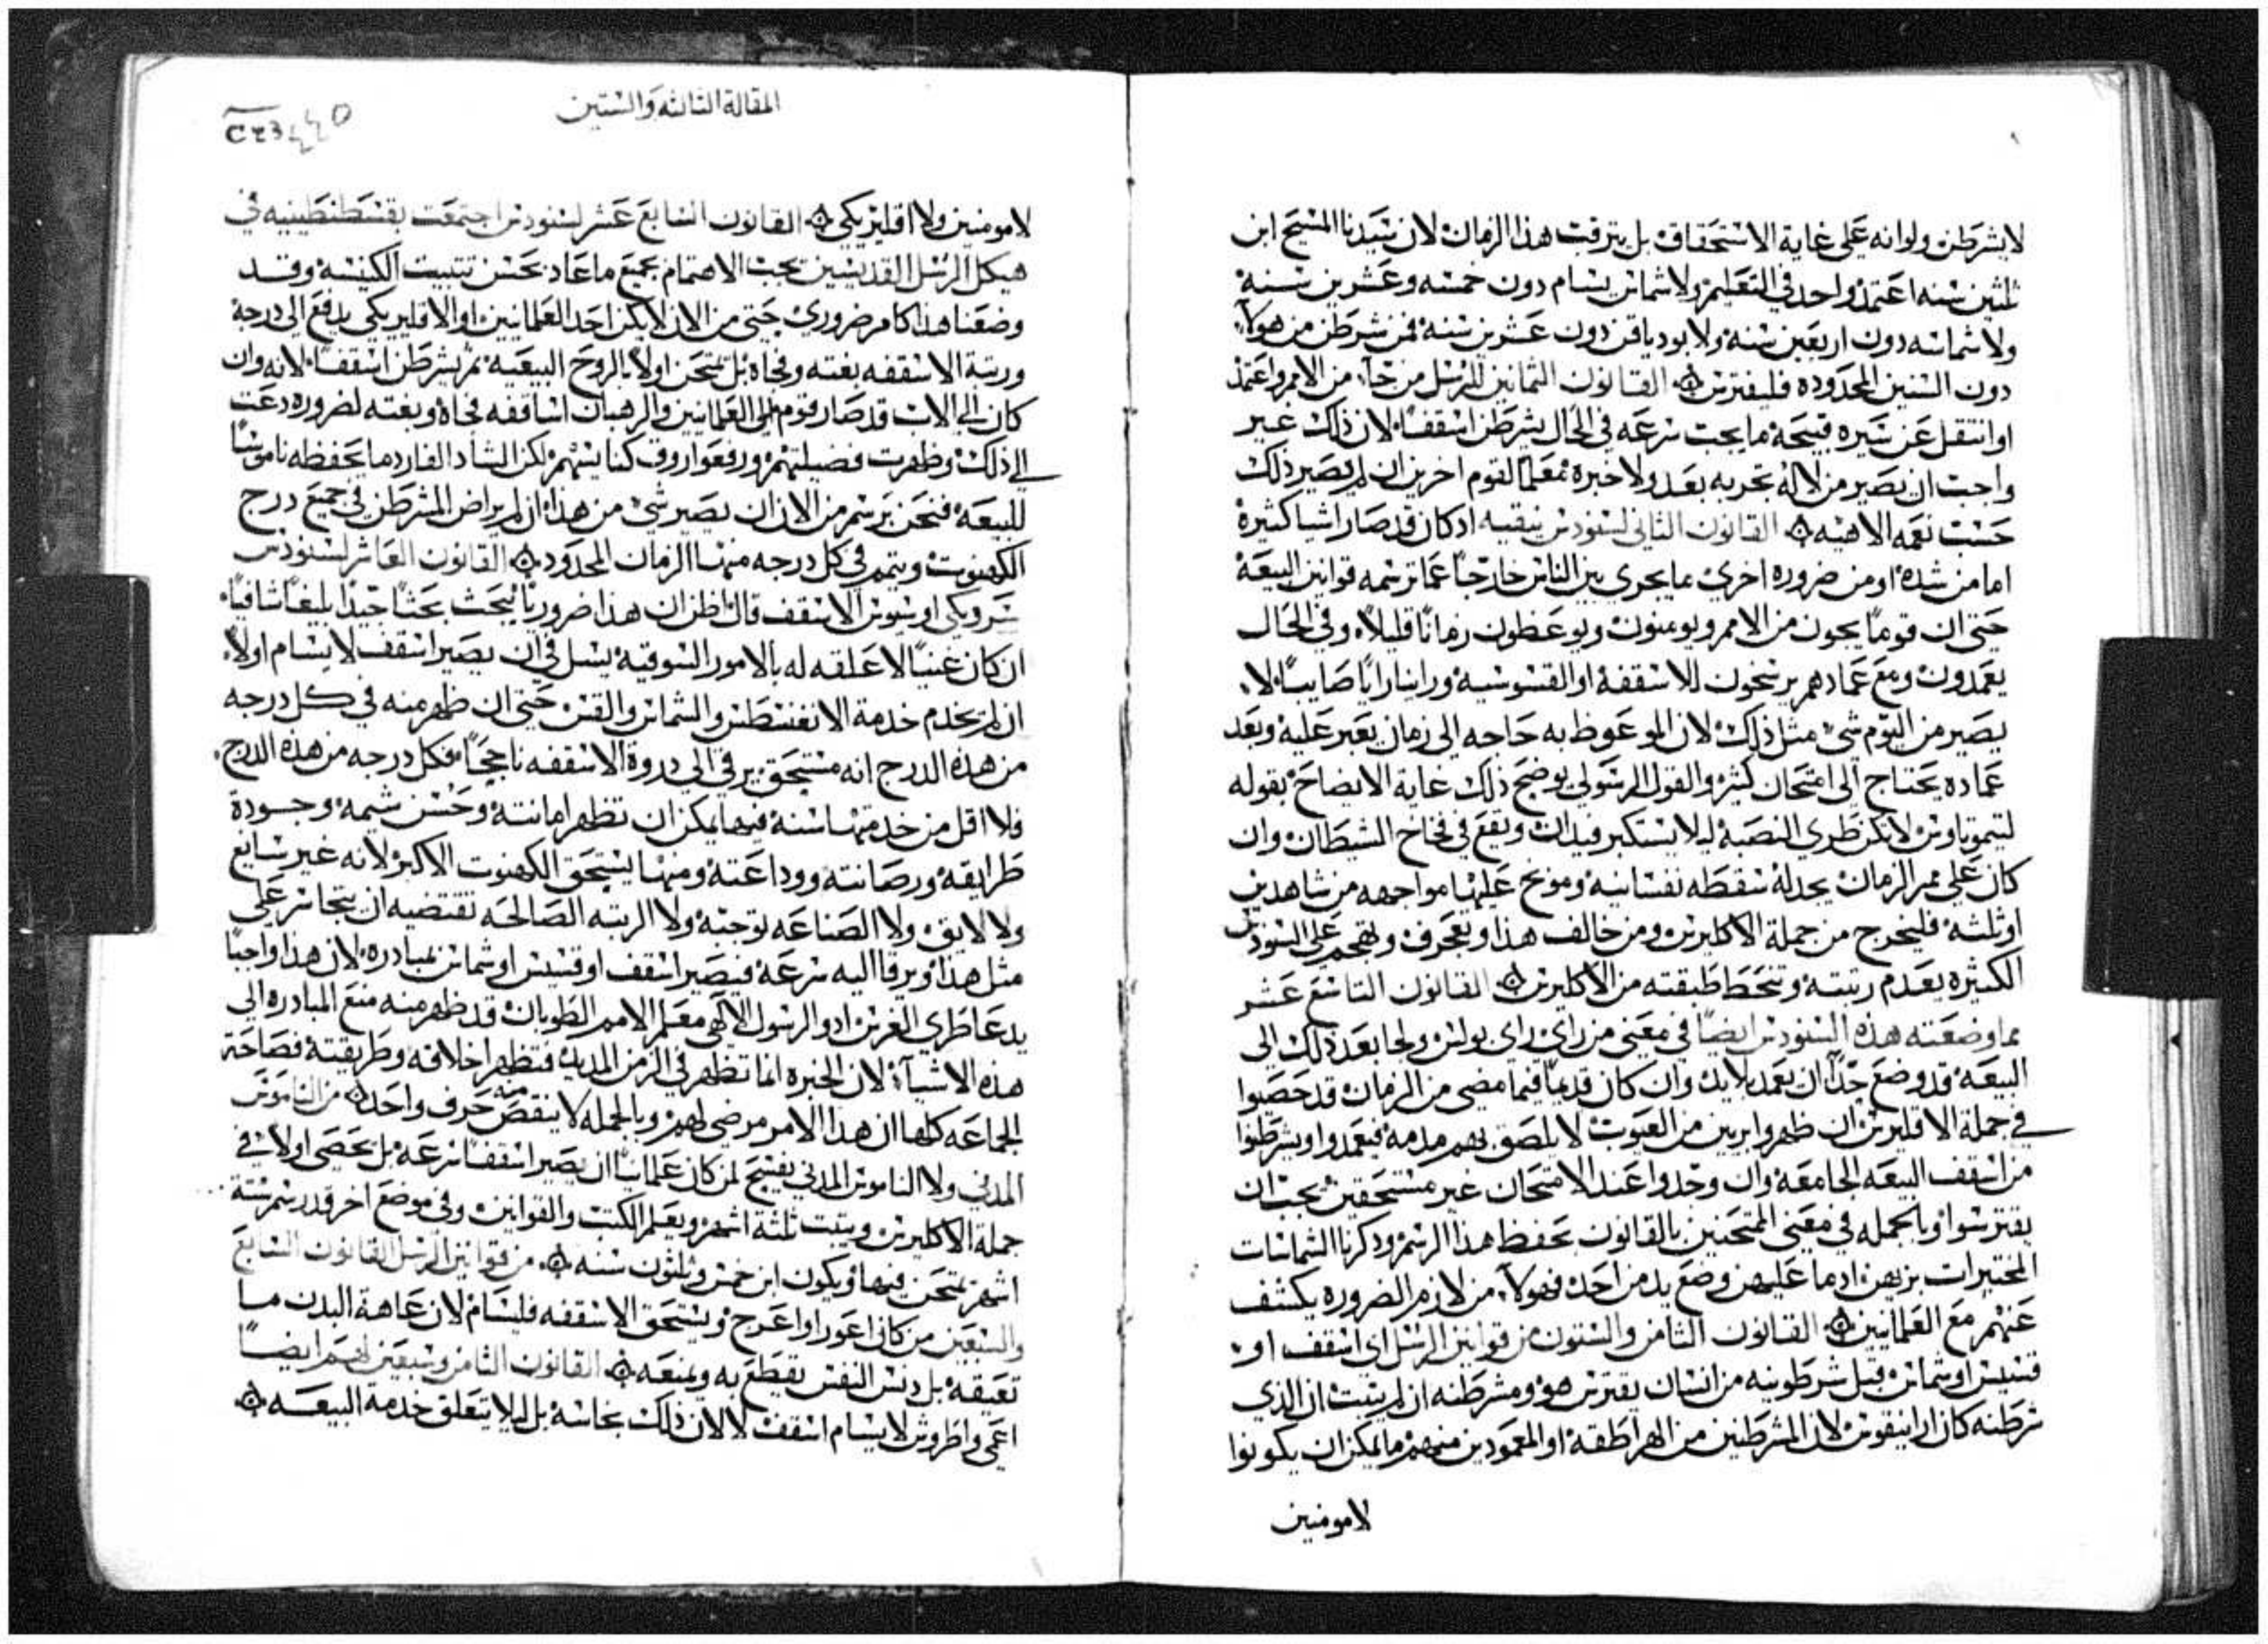 لا يشرطن ولو انه على غاية الاستحقاق بل يترقب هذا الزمان لان سيدنا المسيح ابن
ثلثين سنه اعتمد واحد في التعليم ولا شماس يسام دون خمسه وعشرين سنة
ولا شماسه دون اربعين سنه ولا يودياقن دون عشرين سنه فمن شرطن من هولآء
دون السنين المحدوده فليفترس القانون الثمانين للرسل من جآء من الامم واعتمد
او انتقل عن سيره قبيحة ما يجب سرعه في الحال يشرطن اسقفا لان ذلك غير
واجب ان يصير من لا له تجربه بعد ولا خبره معلما لقوم اخرين ان لم يصير ذلك
حسب نعمه الاهيه القانون الثاني لسنودس نيقيه اد كان قد صار اشيا كثيرة
اما من شدة او من ضروره اخرى مما يجرى بين الناس خارجا عما ترسمه قوانين البيعة
حتى ان قوما يجون من الامم ويومنون ويوعظون زمانا قليلا وفي الحال
يعمدون ومع عمادهم يرشحون للاسقفة او القسوسيه وراينا رايا صايبا لا
يصير من اليوم شي مثل ذلك لان الموعوظ به حاجه الى زمان يعبر عليه وبعد
عماده يحتاج الى امتحان كثير والقول الرسولي يوضح ذلك غاية الايضاح بقوله
لتيموتاوس لا تكن طري النصبة ليلا يستكبر فيدان ويقع في فخاخ الشيطان وان
كان على ممر الزمان يجد له سقطه نفسانيه وموبخ عليها مواجهه من شاهدين
او ثلثه فليخرج من جملة الاكليرس ومن خالف هذا وتعجرف وتهجم على السنودس
الكثيرة يعدم رتبته وتنحط طبقته من الاكليرس القانون التاسع عشر
مما وضعته هذه السنودس ايضا في معنى من راى راى بولس ولجا بعد ذلك الى
البيعة قد وضع حدا ان يعمد لابد وان كان قديما فيما مضى من الزمان قد حصوا
في جملة الاقليرس ان ظهروا بريين من العيوب لا يلصق بهم مذمة فيعمدوا ويشرطنوا
من اسقف البيعه الجامعة وان وجدوا عند الامتحان غير مستحقين يجب ان
يفترسوا وبالجمله في معنى الممتحنين بالقانون يحفظ هذا الرسم ودكرنا الشماسات
المختبرات بزيهن اد ما عليهن وضع يد من احد فهولآء من لازم الضروره يكشف
عنهم مع العلمانيين القانون الثامن والستون من قوانين الرسل اي اسقف او
قسيس او شماس قبل شرطونيه من انسان يفترس هو ومشرطنه ان لم يثبت ان الذي
شرطنه كان اراتيقوس لان المشرطنين من الهراطقة او المعمودين منهم ما يمكن ان يكونوا
لا مومنين
المقالة الثالثه والستين
لا مومنين ولا اقليريكي القانون السابع عشر لسنودس اجتمعت بقسطنطينيه في
هيكل الرسل القديسين يجب الاهتمام بجميع ما عاد بحسن تثبيت الكنيسة وقد
وضعنا هذا كامر ضروري حتى من الان لا يكن احد العلمانيين او الاقليريكي يدفع الى درجة
ورتبة الاسقفه بغته وفجاه بل يمتحن اولا بالروح البيعيه ثم يشرطن اسقفا لانه وان
كان الى الان قد صار قوم من العلمانيين والرهبان اساقفه فجاة وبغته لضروره دعت
الى ذلك وظهرت فضيلتهم ورفعوا روق كنايسهم لكن الشاد الفارد ما يحفظه ناموسا
للبيعة فنحن نرسم من الان ان يصير شي من هذا ان لم يراض المشرطن في جميع درج
الكهنوت ويتمم في كل درجه منها الزمان المحدود القانون العاشر لسنودس
سرديكي اوسيوس الاسقف قال اظن ان هذا ضروريا نبحث بحثا جيدا بليغا شافيا
ان كان غنيا لا علقه له بالامور السوقيه يسل في ان يصير اسقف لا يسام اولا
ان لم يخدم خدمة الانغنسطس والشماس والقس حتى ان ظهر منه في كل درجه
من هذه الدرج انه مستحق يرقى الى دروة الاسقفه ناجحا فكل درجه من هذه الدرج
فلا اقل من خدمتها سنة فيها يمكن ان تظهر امانته وحسن شيمه وجودة
طرايقه ورصانته ووداعته ومنها يستحق الكهنوت الاكبر لانه غير سايغ
ولا لايق ولا الصناعه توجبه ولا الرتبه الصالحه تقتضيه ان يتجاسر على
مثل هذا ويرقا اليه سرعه فيصير اسقف او قسيس او شماس بمبادره لان هذا واجبا
يدعا طري الغرس اد والرسول الالهي معلم الامم الطوبان قد ظهر منه منع المبادره الى
هذه الاشيآء لان الخبره انما تظهر في الزمن المديد فتظهر اخلاقه وطريقته فصاحة
الجماعه كلها ان هذا الامر مرضي لهم وبالجمله لا ينقص منه حرف واحد من الناموس
المدني ولا الناموس المدني يفسح لمن كان علمانيا ان يصير اسقفا سرعه بل يحصى اولا في
جملة الاكليرس ويتبت ثلثة اشهر ويعلم الكتب والقوانين وفي موضع اخر قد رسم ستة
اشهر يمتحن فيها ويكون ابن خمس وثلثون سنه من قوانين الرسل القانون السابع
والسبعين من كان اعور او اعرج ويستحق الاسقفه فليسام لان عاهة البدن ما
تعيقه بل دنس النفس يقطع به ويمنعه القانون الثامن وسبعين لهم ايضا
اعمى واطروش لا يسام اسقف لا لان ذلك نجاسة بل ليلا يتعلق خدمة البيعه